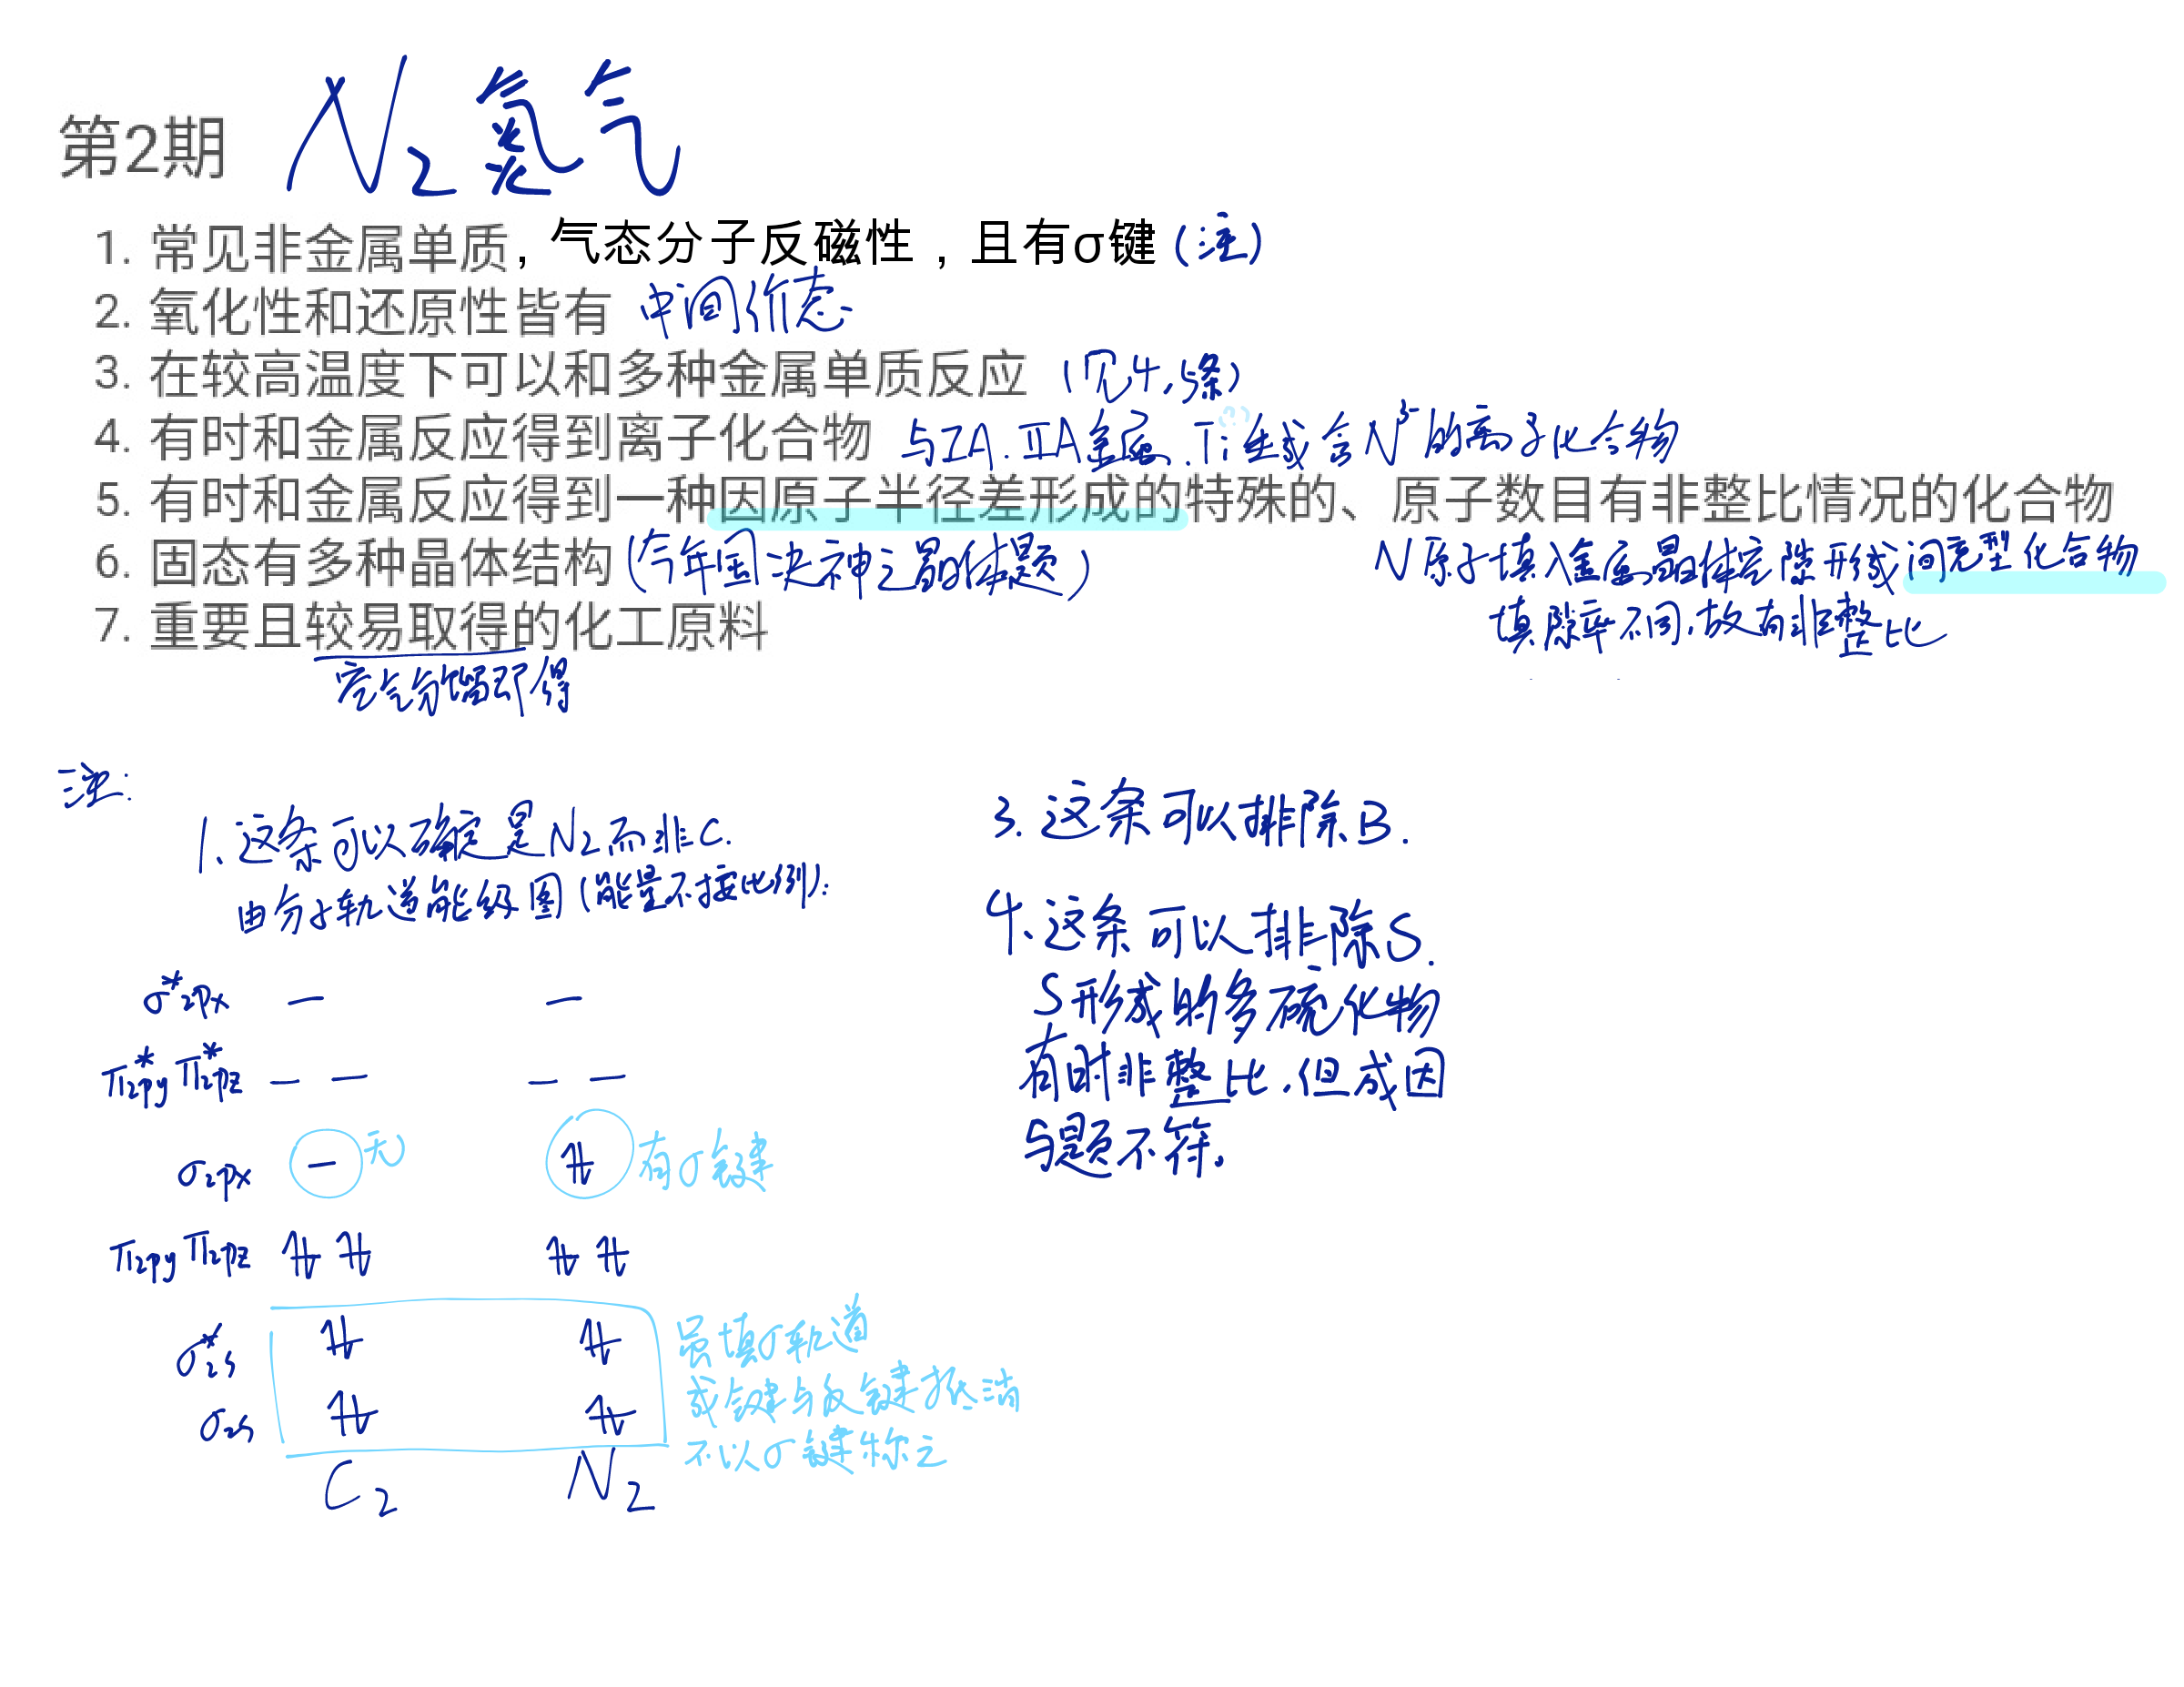 第2期 N₂ 氮气
1. 常见非金属单质，气态分子反磁性，且有σ键 (注)
2. 氧化性和还原性皆有 中间价态.
3. 在较高温度下可以和多种金属单质反应 (见4,5条)
4. 有时和金属反应得到离子化合物 与IA. IIA金属.Ti(?)生成含N³⁻的离子化合物
5. 有时和金属反应得到一种因原子半径差形成的特殊的、原子数目有非整比情况的化合物
N原子填入金属晶体空隙形成间充型化合物
填隙率不同,故有非整比
6. 固态有多种晶体结构 (今年国决神之晶体题)
7. 重要且较易取得的化工原料
空气分馏即得
注:
1、这条可以确定是N₂而非C.
由分子轨道能级图(能量不按比例):
σ*2px — —
π*2py π*2pz — — — —
σ2px — 无 ⇅ 有σ键
π2py π2pz ⇅ ⇅ ⇅ ⇅
σ*2s ⇅ ⇅
σ2s ⇅ ⇅
虽填σ轨道
成键与反键抵消
不以σ键称之
C₂ N₂
3. 这条可以排除B.
4、这条可以排除S.
S形成的多硫化物
有时非整比,但成因
与题不符。